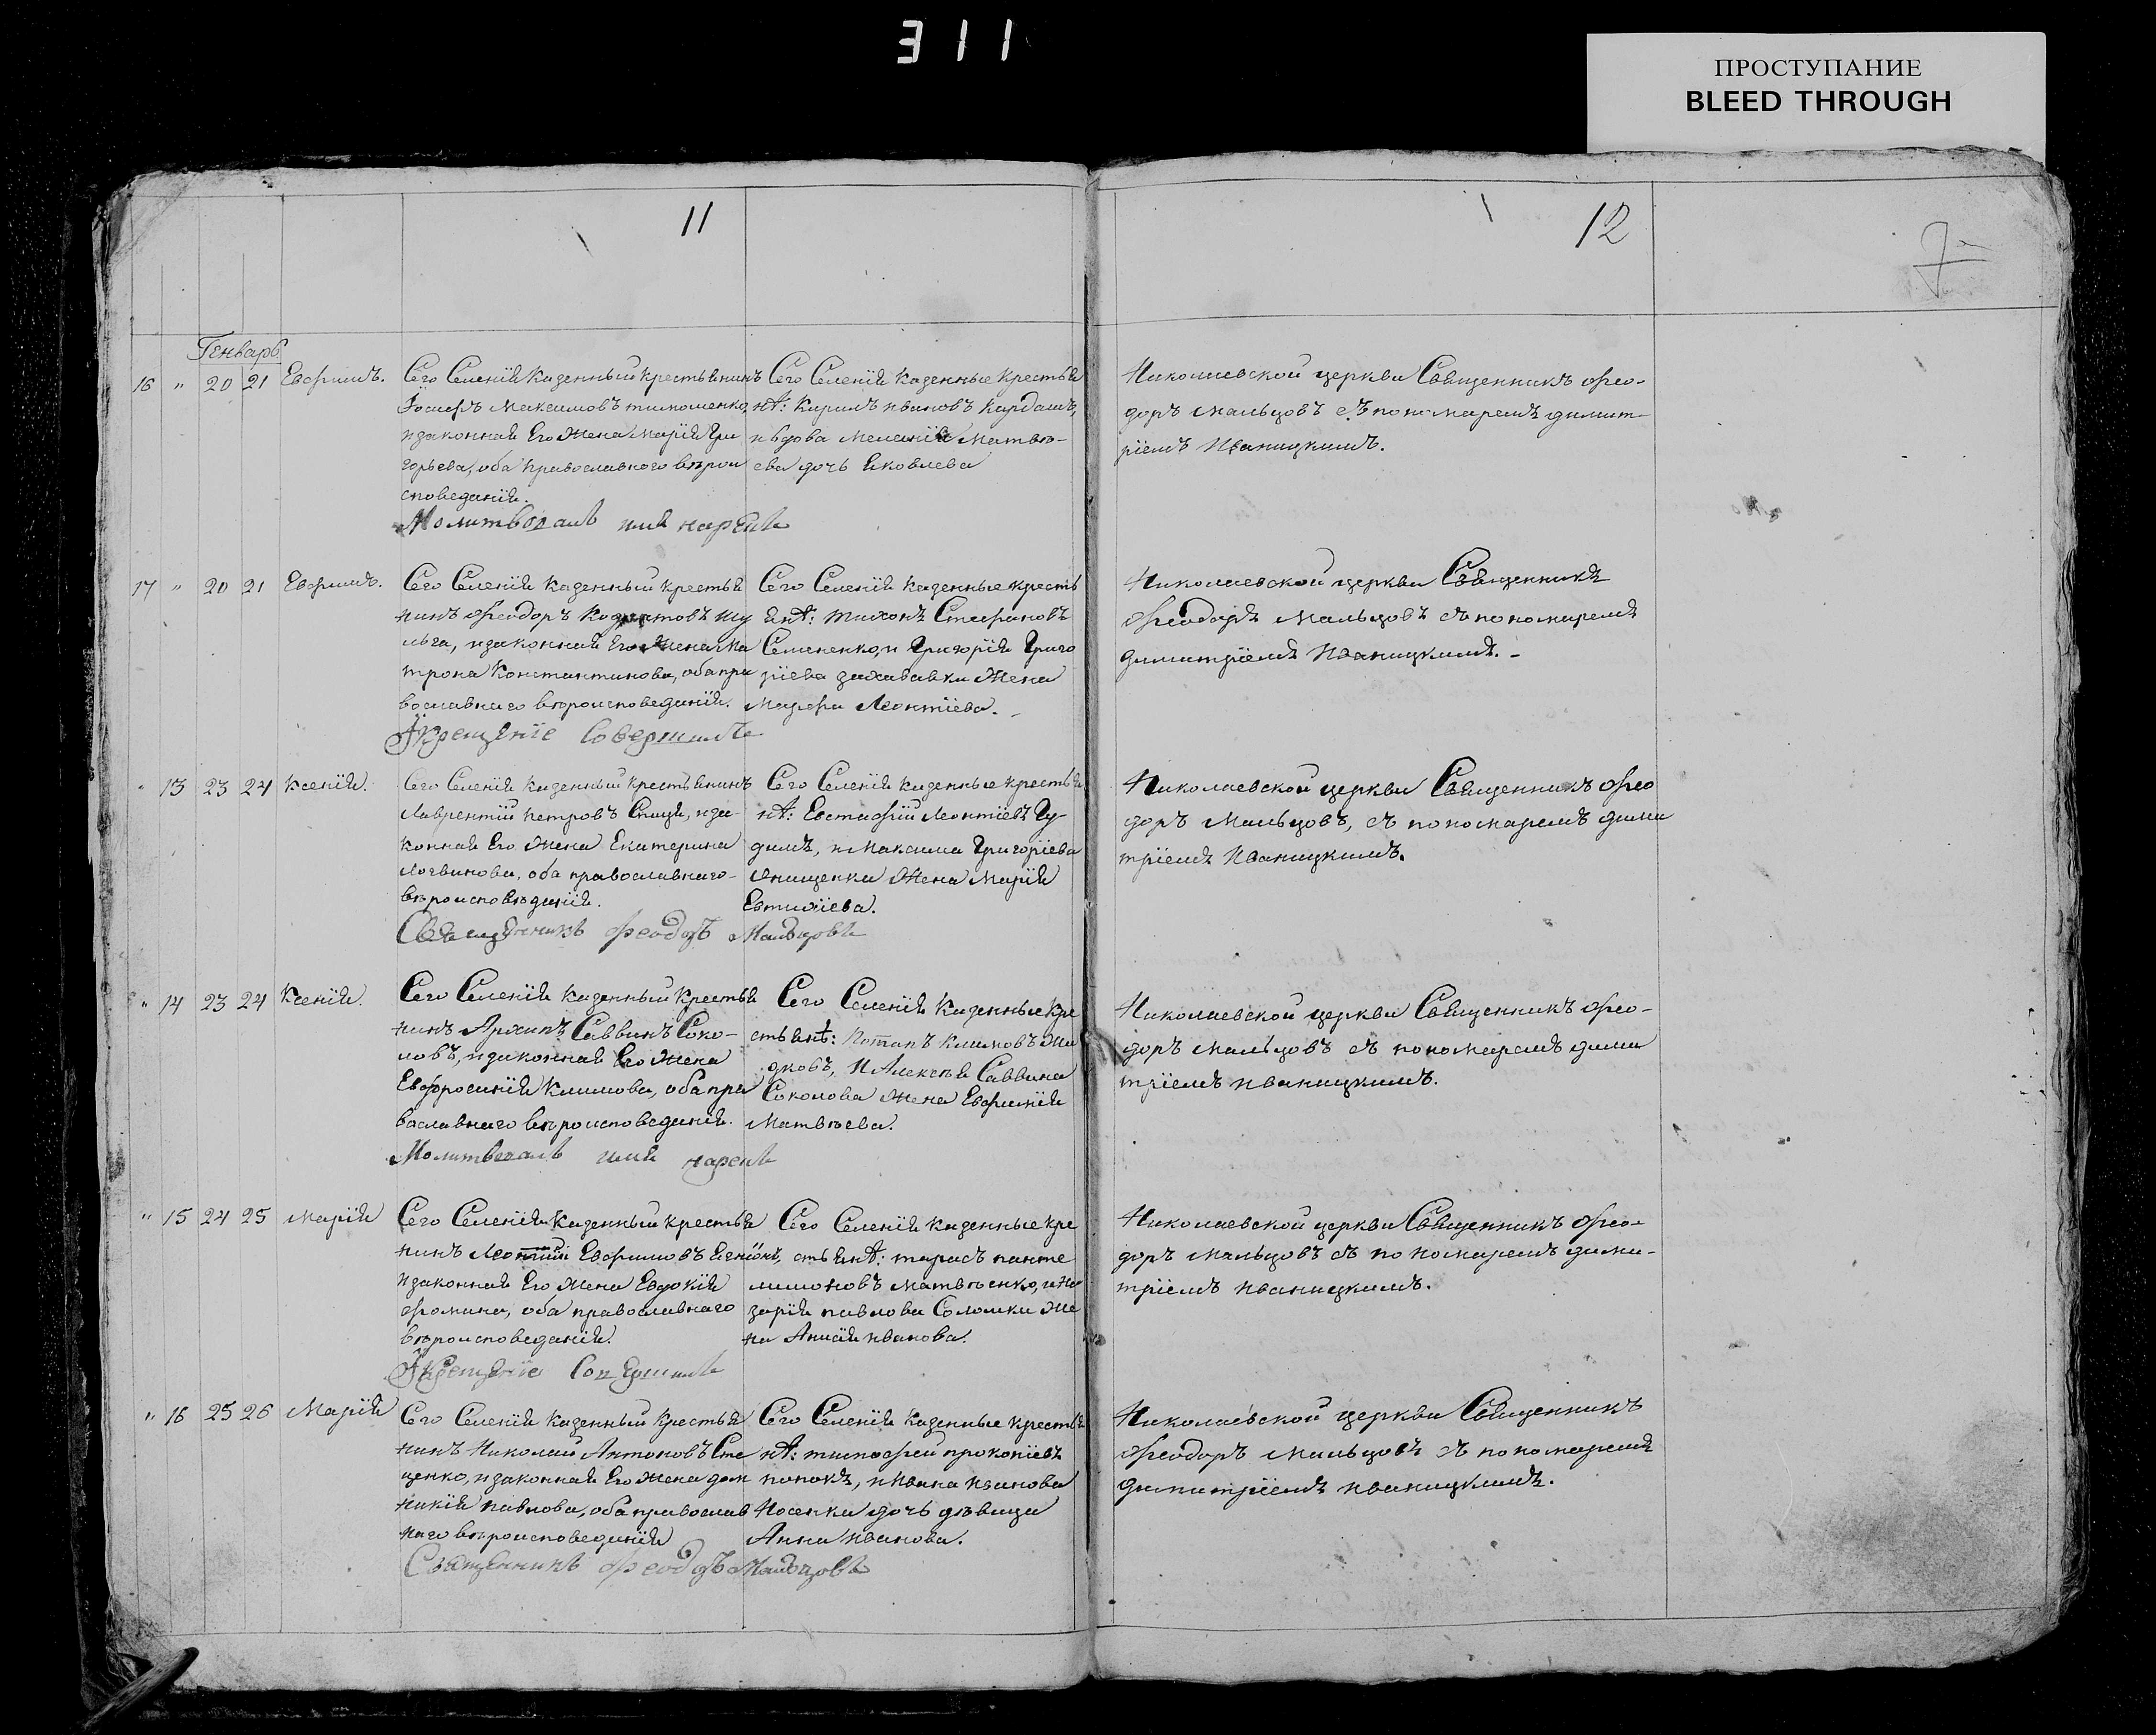 311
ПРОСТУПАНИЕ
BLEED THROUGH
11
12
7
Генварь
16 " 20 21 Евфимъ.
Сего Селенія Казенный крестьянинъ
Іосифъ Максимовъ тимошенко,
и законная Его Жена Марія Гри
горьева, оба православного върои
споведанія.
Сего Селенія Казенные крестья
нѣ: Кирилъ Ивановъ Кардашъ,
и вдова Меланія Матвѣ-
ева дочь Яковлева
Николаевской церкви Священникъ Ѳео-
доръ Мальцовъ съ пономаремъ димит-
ріемъ Иваницкимъ.
Молитвовалъ имя нареклъ
17 " 20 21 Евфимъ.
Сего Селенія Казенный крестья
нинъ Ѳеодоръ
и законная Его Жена Ма
трона Константинова, оба пра
вославнаго въроисповеданія.
Сего Селенія Казенные кресть
янѣ: Тихонъ Стефановъ
Семененко, и Григорія Григо
ріева Жена
Марфа Леонтіева.
Николаевской церкви Священникъ
Ѳеодоръ Мальцовъ съ пономаремъ
димитріемъ Иваницкимъ.
Крещеніе Совершилъ
" 13 23 24 Ксенія.
Сего Селенія Казенный крестьянинъ
Лаврентій Петровъ Спица, и за-
конная Его Жена Екатерина
Логвинова, оба православнаго
въроисповъданія.
Сего Селенія Казенные крестья
нѣ: Евстафій Леонтіевъ Гу-
димъ, и Максима Григоріева
Онищенка Жена Марія
Евтихіева.
Николаевской церкви Священникъ Ѳео
доръ Мальцовъ, съ пономаремъ дими
тріемъ Иваницкимъ.
Священникъ Ѳеодоръ Мальцовъ
" 14 23 24 Ксенія.
Сего Селенія Казенный крестья
нинъ Архипъ Саввинъ Соко-
ловъ, и законная Его Жена
Евфросинія Климова, оба пра
вославнаго въроисповеданія.
Сего Селенія Казенные кре
стьянѣ: Потапъ Климовъ Жи
дковъ, И Алексѣя Саввина
Соколова Жена Евфимія
Матвѣева.
Николаевской церкви Священникъ Ѳео-
доръ Мальцовъ съ пономаремъ дими
тріемъ Иваницкимъ.
Молитвовалъ имя нареклъ
" 15 24 25 Марія
Сего Селенія Казенный крестья
нинъ Леонтій Евфимовъ
и законная Его Жена Евдокія
Фомина, оба православнаго
въроисповеданія.
Сего Селенія Казенные кре
стьянѣ: тарасъ панте
лимоновъ Матвѣенко, и На
зарія павлова Соломки Же
на Анисія Иванова.
Николаевской церкви Священникъ Ѳео-
доръ Мальцовъ съ пономаремъ дими-
тріемъ Иваницкимъ.
Крещеніе Совершилъ
" 16 25 26 Марія
Сего Селенія Казенный крестья
нинъ Николай Антоновъ Сте
ценко, и законная Его Жена дом
никія павлова, оба православ
наго въроисповеданія
Сего Селенія Казенные крестья
нѣ: тимофей прокопіевъ
попокъ, и Ивана Иванова
Носенка дочь дѣвица
Анна Иванова.
Николаевской церкви Священникъ
Ѳеодоръ Мальцовъ съ пономаремъ
димитріемъ Иваницкимъ.
Священникъ Ѳеодоръ Мальцовъ